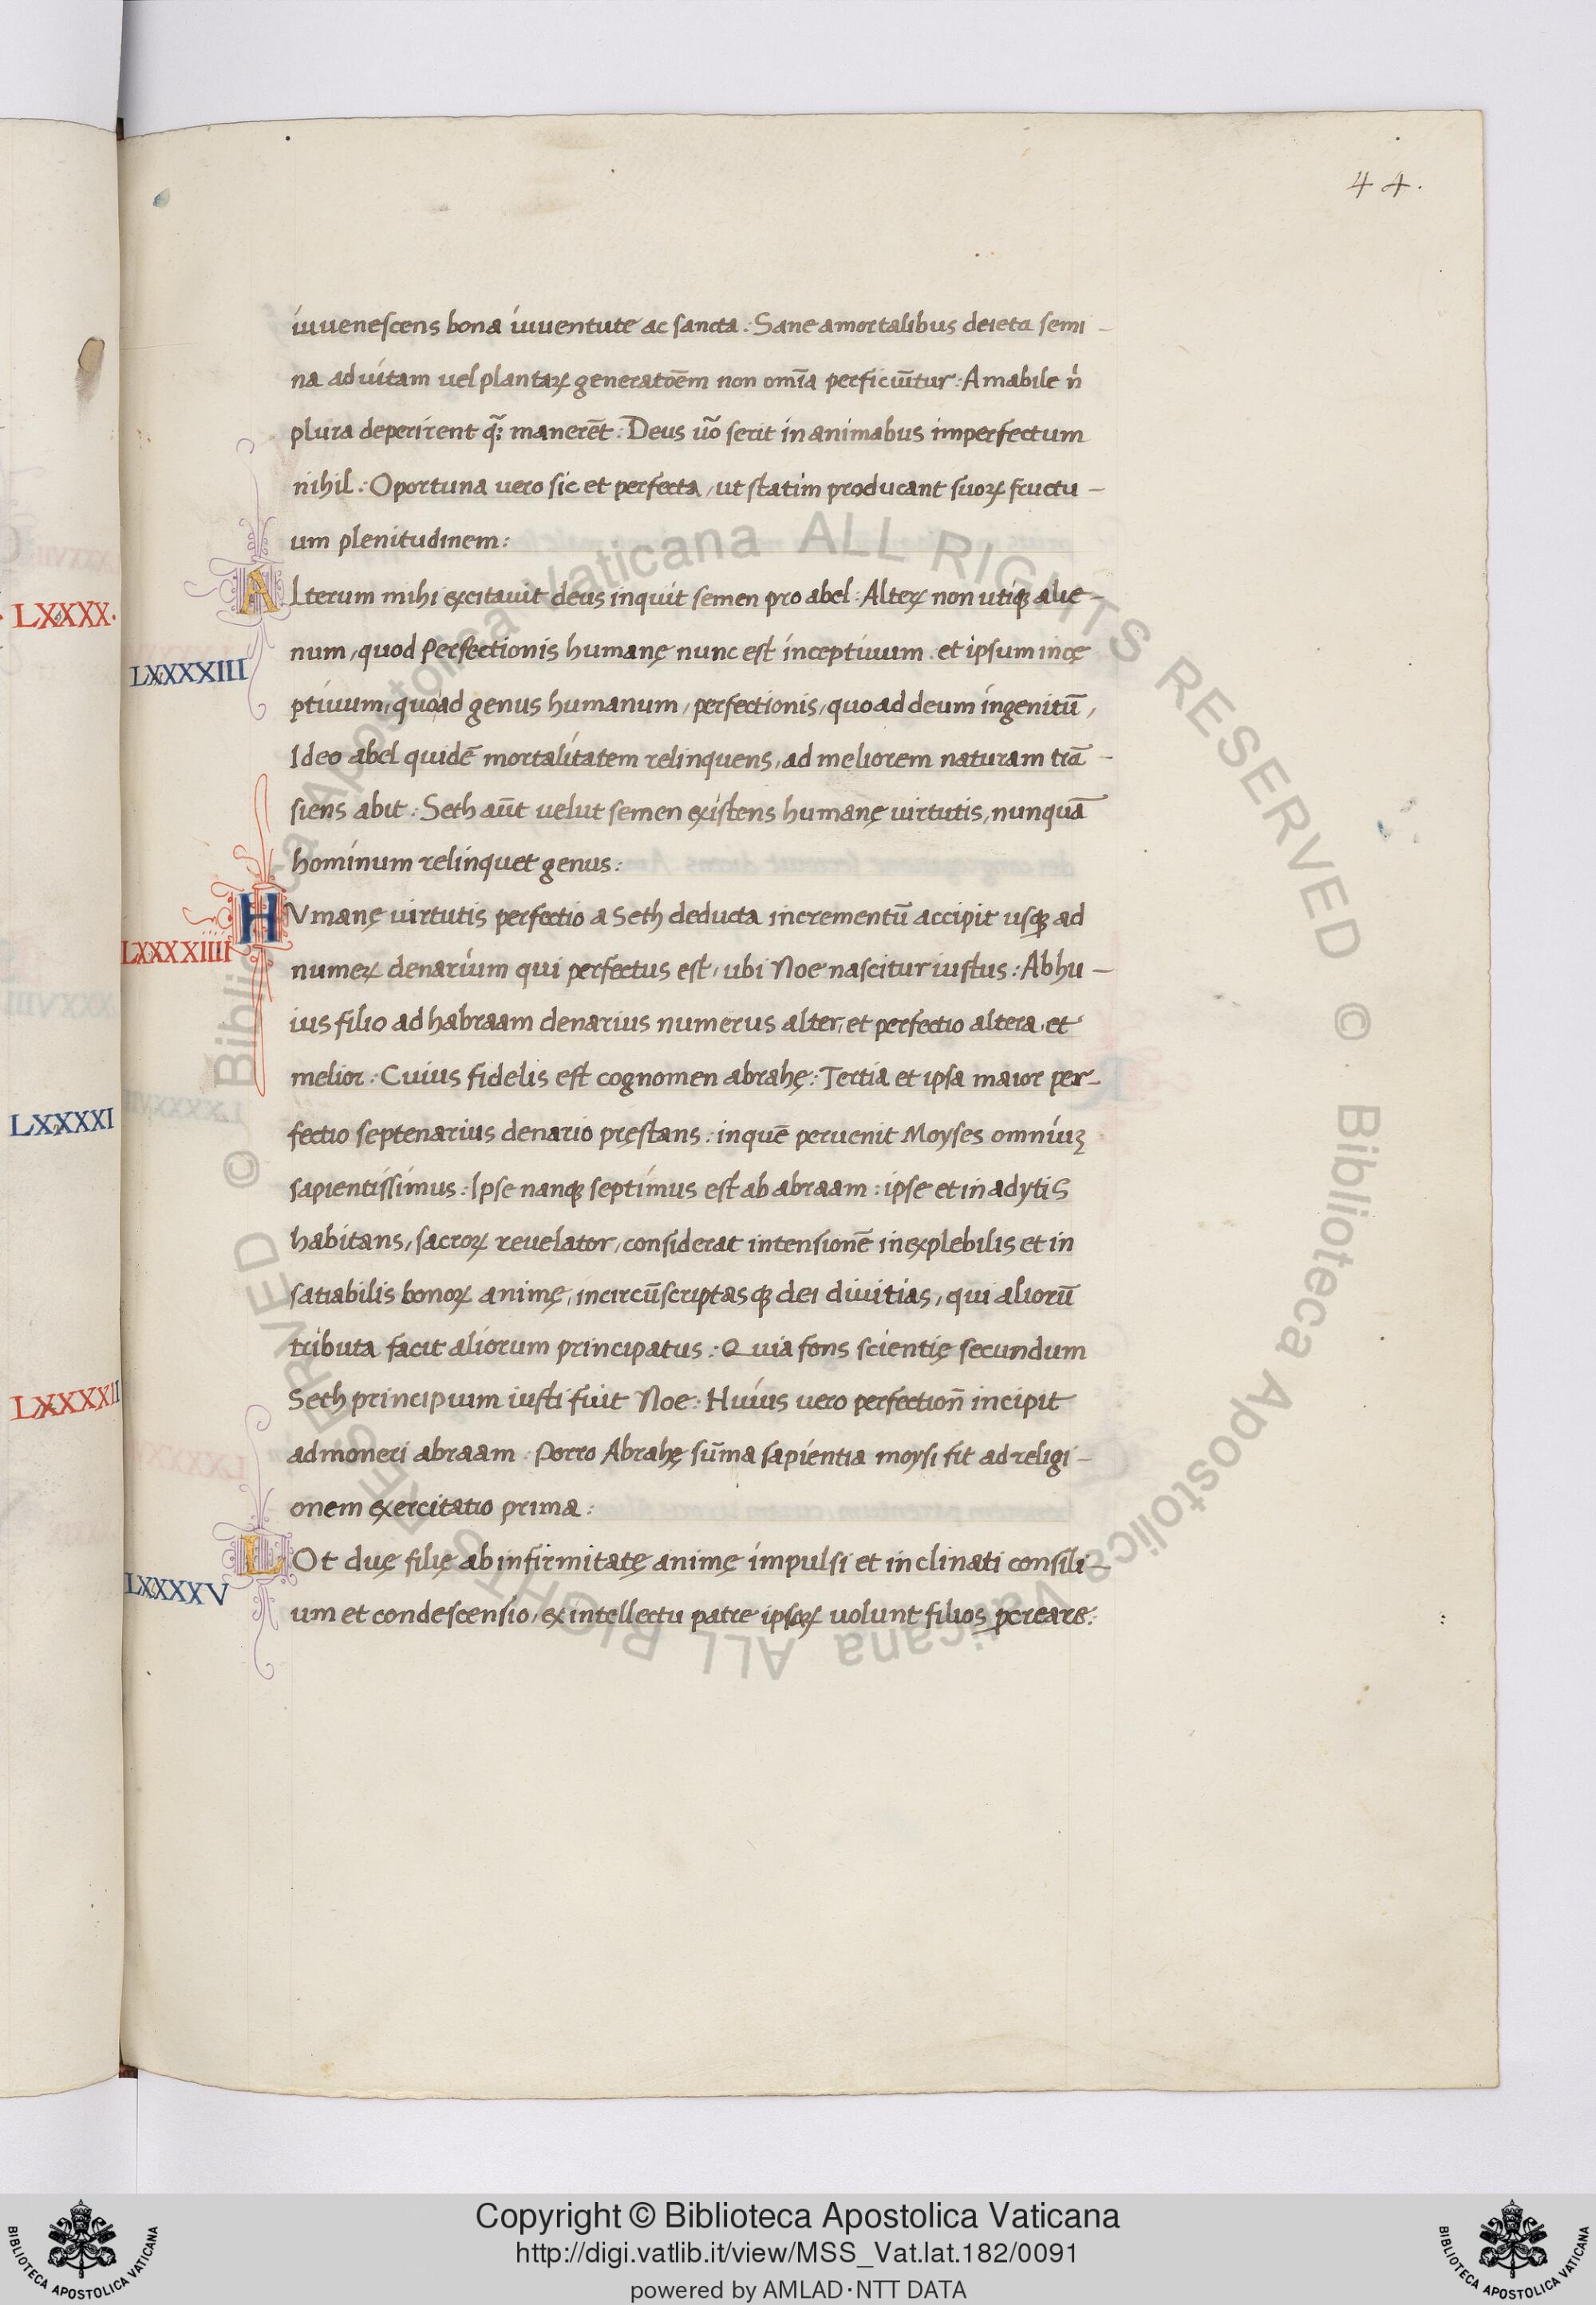 44.
iuuenescens bona iuuentute ac sancta : Sane a mortalibus deiecta semi –
na ad uitam uel plantaꝝ generatoēm non om̄ia perficiūtur : Amabile n̄
plura deperirent q̄ꝫ manerēt : Deus uo᷃ serit in animabus imperfectum
nihil : Oportuna uero sic et perfecta , ut statim producant suoꝝ fructu –
um plenitudinem :
ALterum mihi excitauit deus inquit semen pro abel : Alteꝝ non utiqꝫ alie –
LXXXX.
num , quod perfectionis humanę nunc est inceptiuum . et ipsum incę
LXXXXIII
ptiuum , quoad genus humanum , perfectionis , quo ad deum ingenitū ,
Ideo abel quidē mortalitatem relinquens , ad meliorem naturam trā –
siens abit : Seth aūt uelut semen existens humanę uirtutis , nunquā
hominum relinquet genus :
HVmanę uirtutis perfectio a Seth deducta incrementū accipit usqꝫ ad
LXXXXIIII
numeꝝ denarium qui perfectus est , ubi Noe nascitur iustus : Ab hu –
ius filio ad habraam denarius numerus alter , et perfectio altera , et
melior : Cuius fidelis est cognomen abrahę : Tertia et ipsa maior per –
LXXXXI
fectio septenarius denario pręstans : in quē peruenit Moyses omniuꝫ
sapientissimus : Ipse nanqꝫ septimus est ab abraam : ipse et in adytis
habitans , sacroꝝ reuelator , considerat intensionē inexplebilis et in
satiabilis bonoꝝ animę , incircūscriptasqꝫ dei diuitias , qui aliorū
tributa facit aliorum principatus : Quia fons scientię secundum
Seth principium iusti fuit Noe : Huius vero perfectioñ incipit
LXXXXII
admoneri abraam : Porro Abrahę sūma sapientia moysi fit ad religi –
onem exercitatio prima :
LOt duę filię ab infirmitatę animę impulsi et inclinati consili –
LXXXXV
um et condescensio , ex intellectu patre ipsoꝝ uolunt filios ꝓcreare :
ALL RIGHTS RESERVED © Biblioteca Apostolica Vaticana
Copyright © Biblioteca Apostolica Vaticana
http://digi.vatlib.it/view/MSS_Vat.lat.182/0091
powered by AMLAD·NTT DATA
BIBLIOTECA APOSTOLICA VATICANA
BIBLIOTECA APOSTOLICA VATICANA